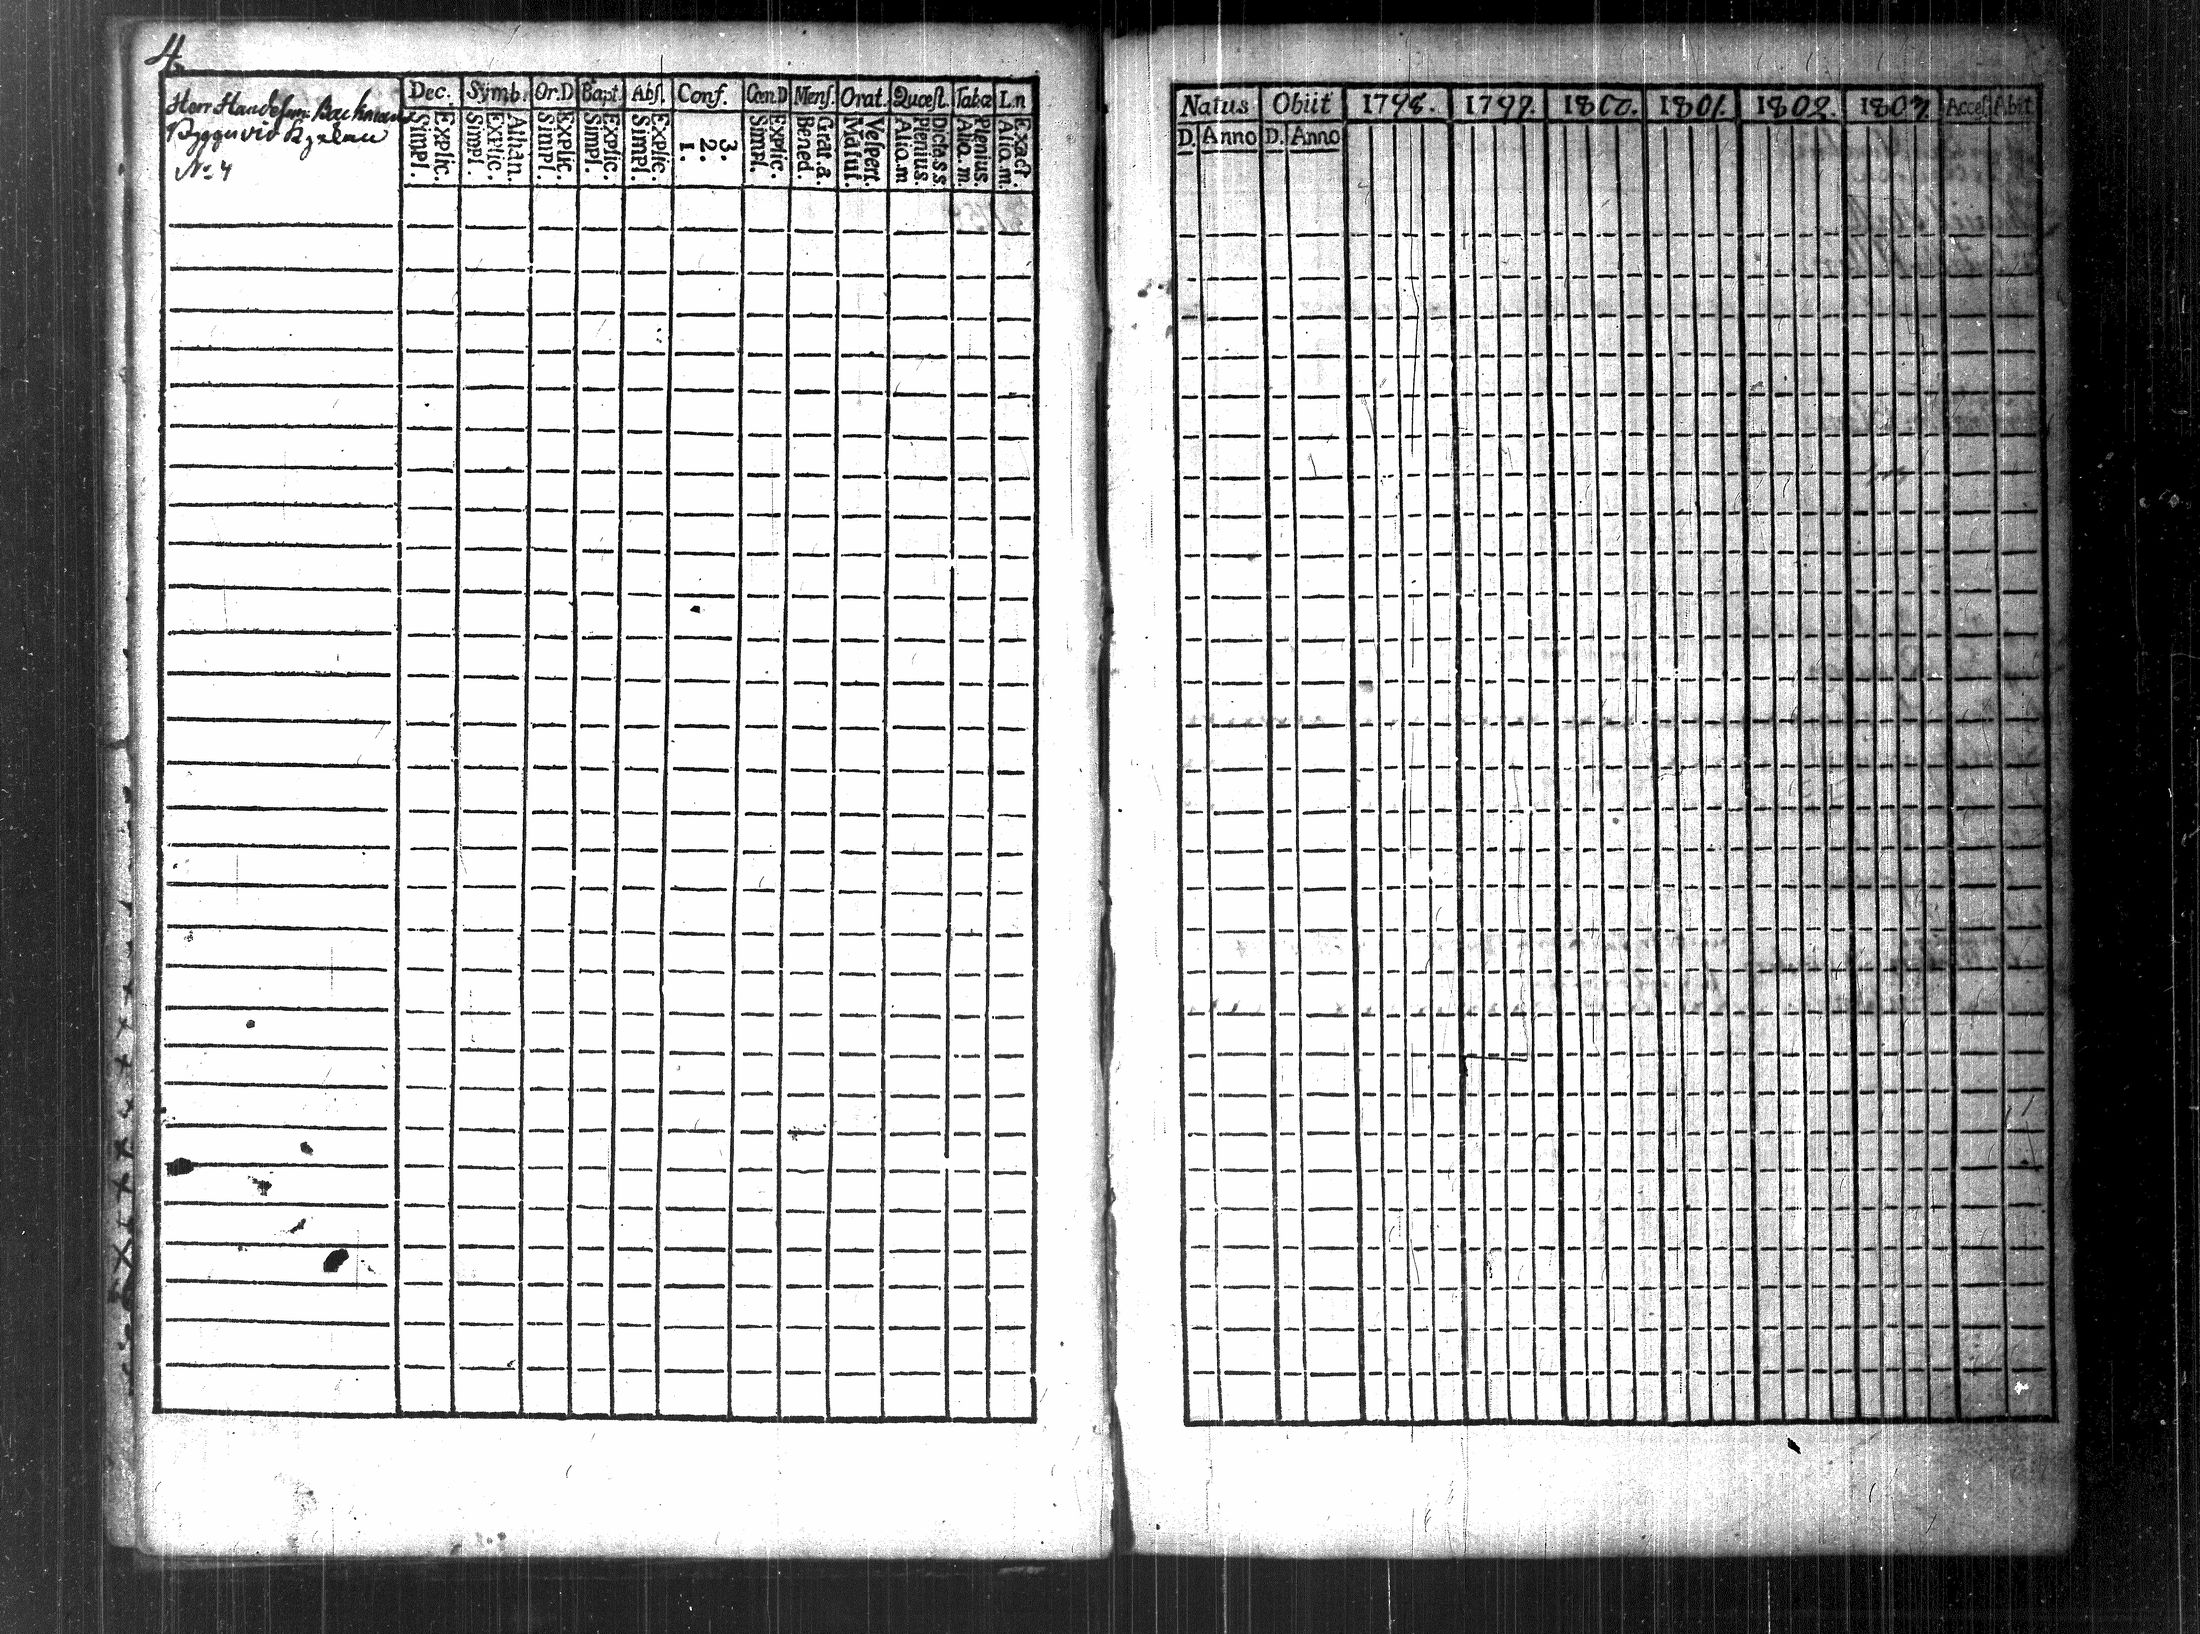 4.
Herr Handelsm: Backmans
Bygg vid Kyrkan
No 4
Dec. Symb. Or.D Bapt. Abs. Conf. Con.D Mens. Orat. Quæst. Tabæ L.n
Explic. Simpl.
Athan. Explic. Simpl.
Explic. Simpl.
Explic. Simpl.
Explic. Simpl.
3. 2. 1.
Explic. Simpl.
Grat.a. Bened.
Vespert. Matut.
Dicta s.s. Plenius. Alio.m
Plenius. Alio.m.
Exact. Alio.m.
Natus Obiit 1798. 1799. 1800. 1801. 1802. 1803. Access. Abit.
D. Anno D. Anno